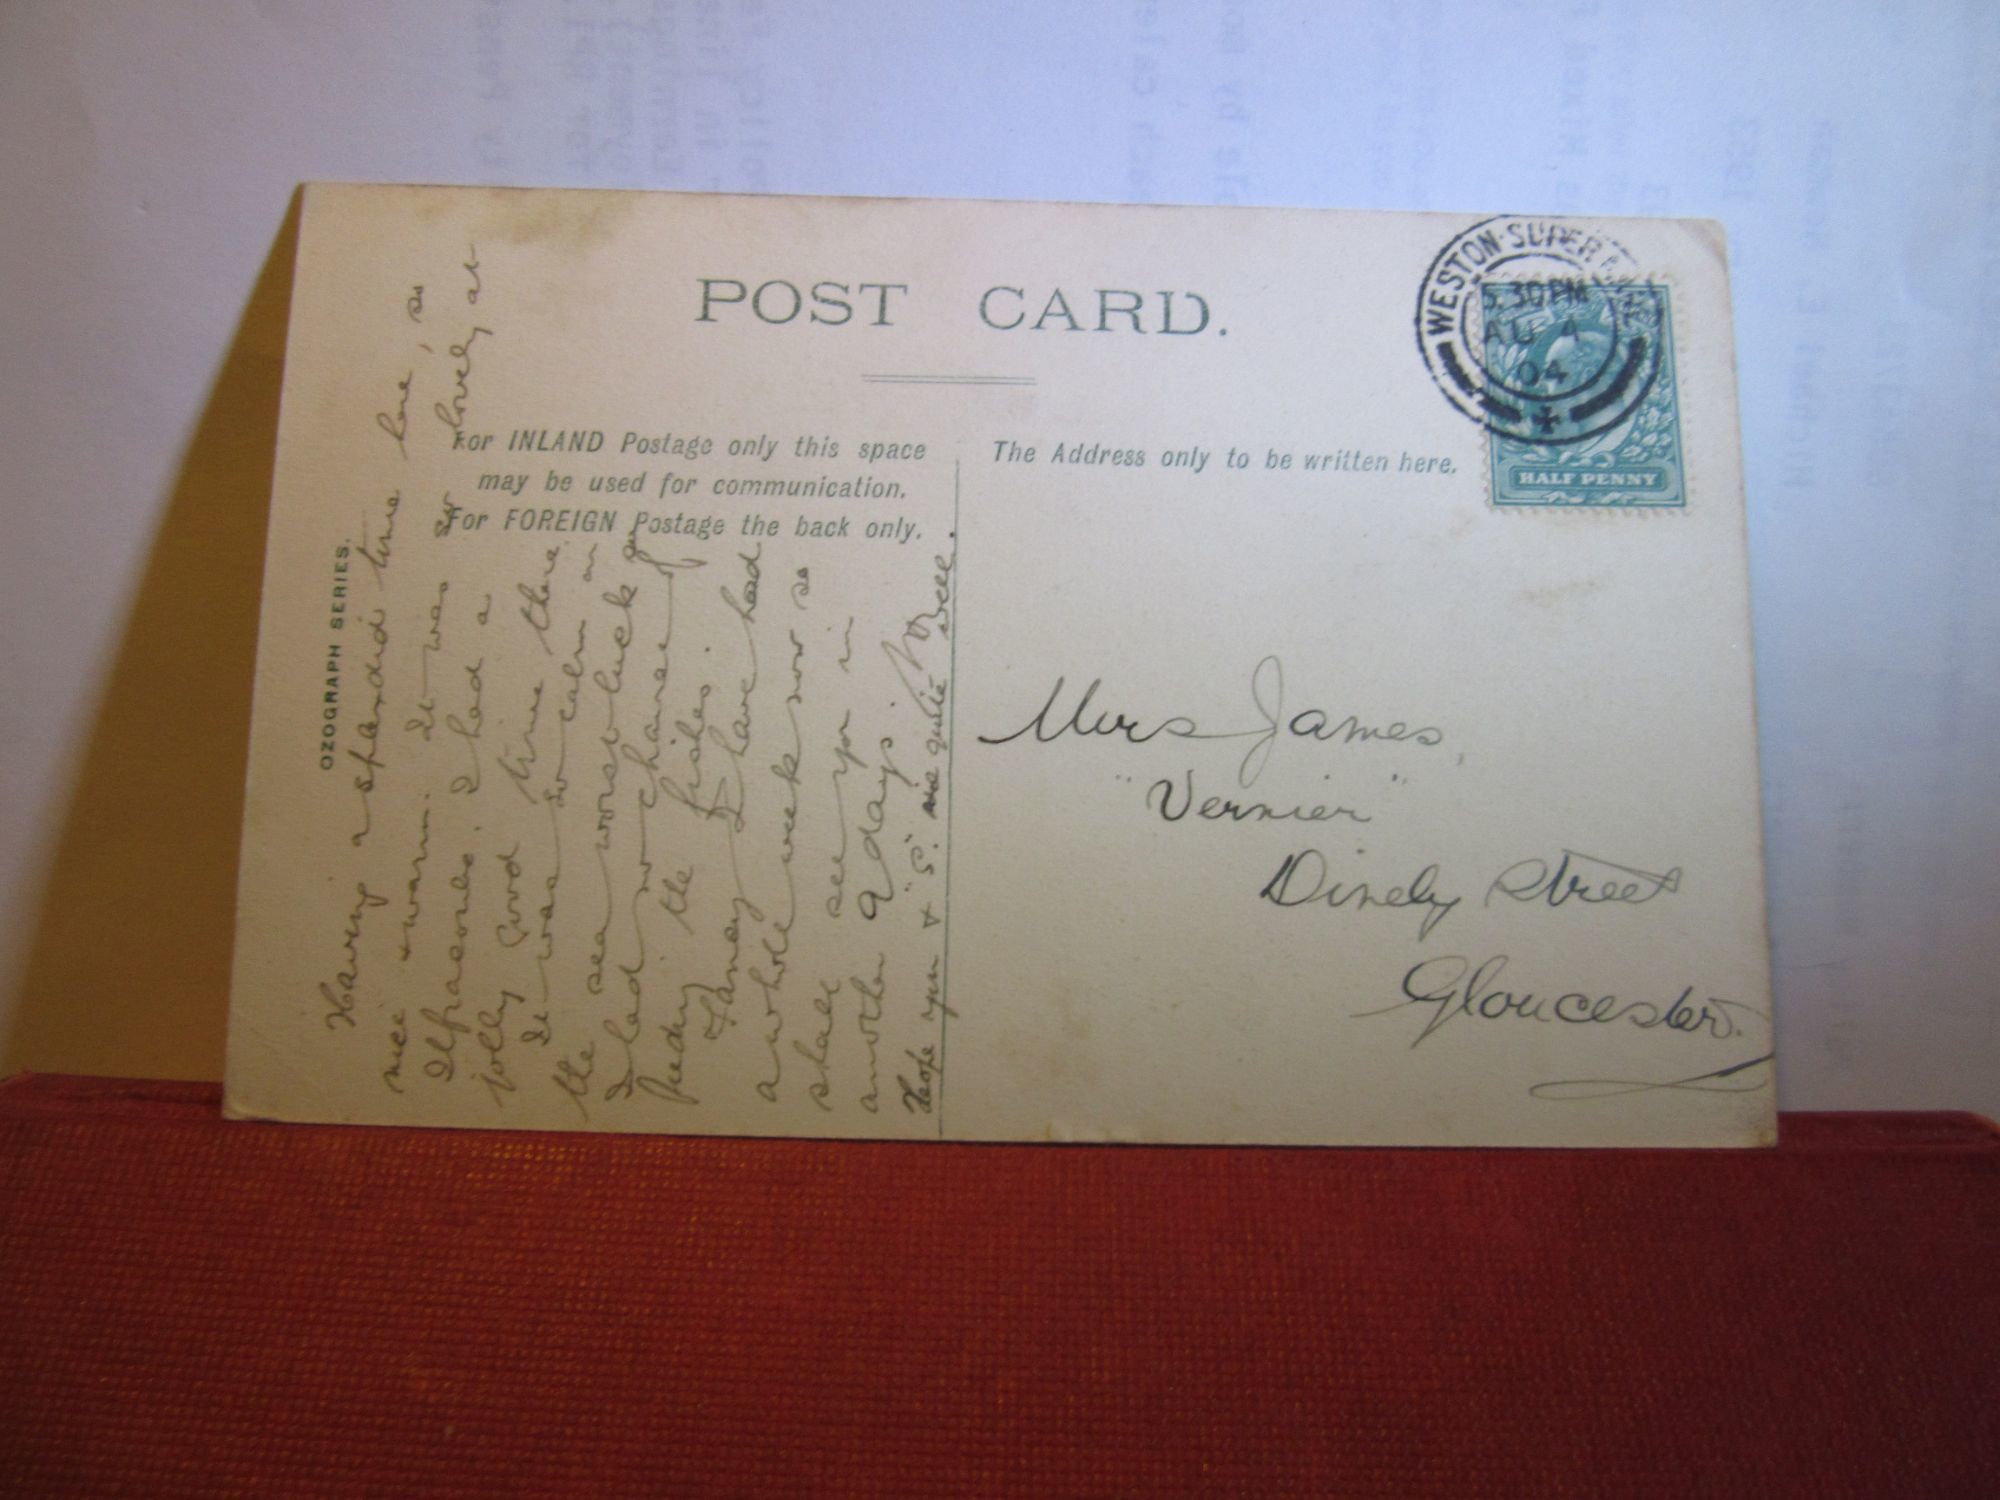 POST CARD.
For INLAND Postage only this space
may be used for communication.
For FOREIGN Postage the back only.
The Address only to be written here.
OZOGRAPH SERIES.
WESTON-SUPER
5.30 PM
AU 4
04
HALF PENNY
Having a splendid time here, so
nice & warm. It was so lovely at
Ilfracombe. I had a
jolly good time there.
It was so calm on
the sea worse luck
I had no chance of
feeding the fishes.
Fancy I have had
a whole week now so
shall see you in
another 9 days.
Hope you & "S" are quite well.
Mrs James,
"Vernier"
Dinely Street
Gloucester.